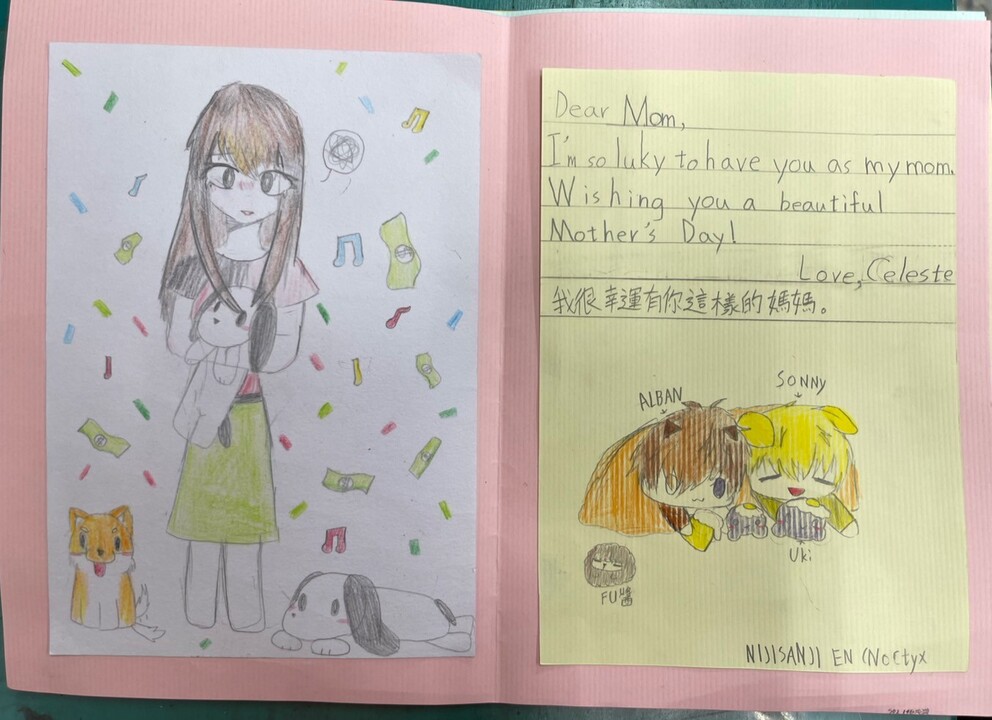 Dear Mom,
I'm so luky to have you as my mom.
Wishing you a beautiful
Mother's Day!
Love, Celeste
我很幸運有你這樣的媽媽。
ALBAN
SONNY
Uki
FU
NIJISANJI EN (Noctyx